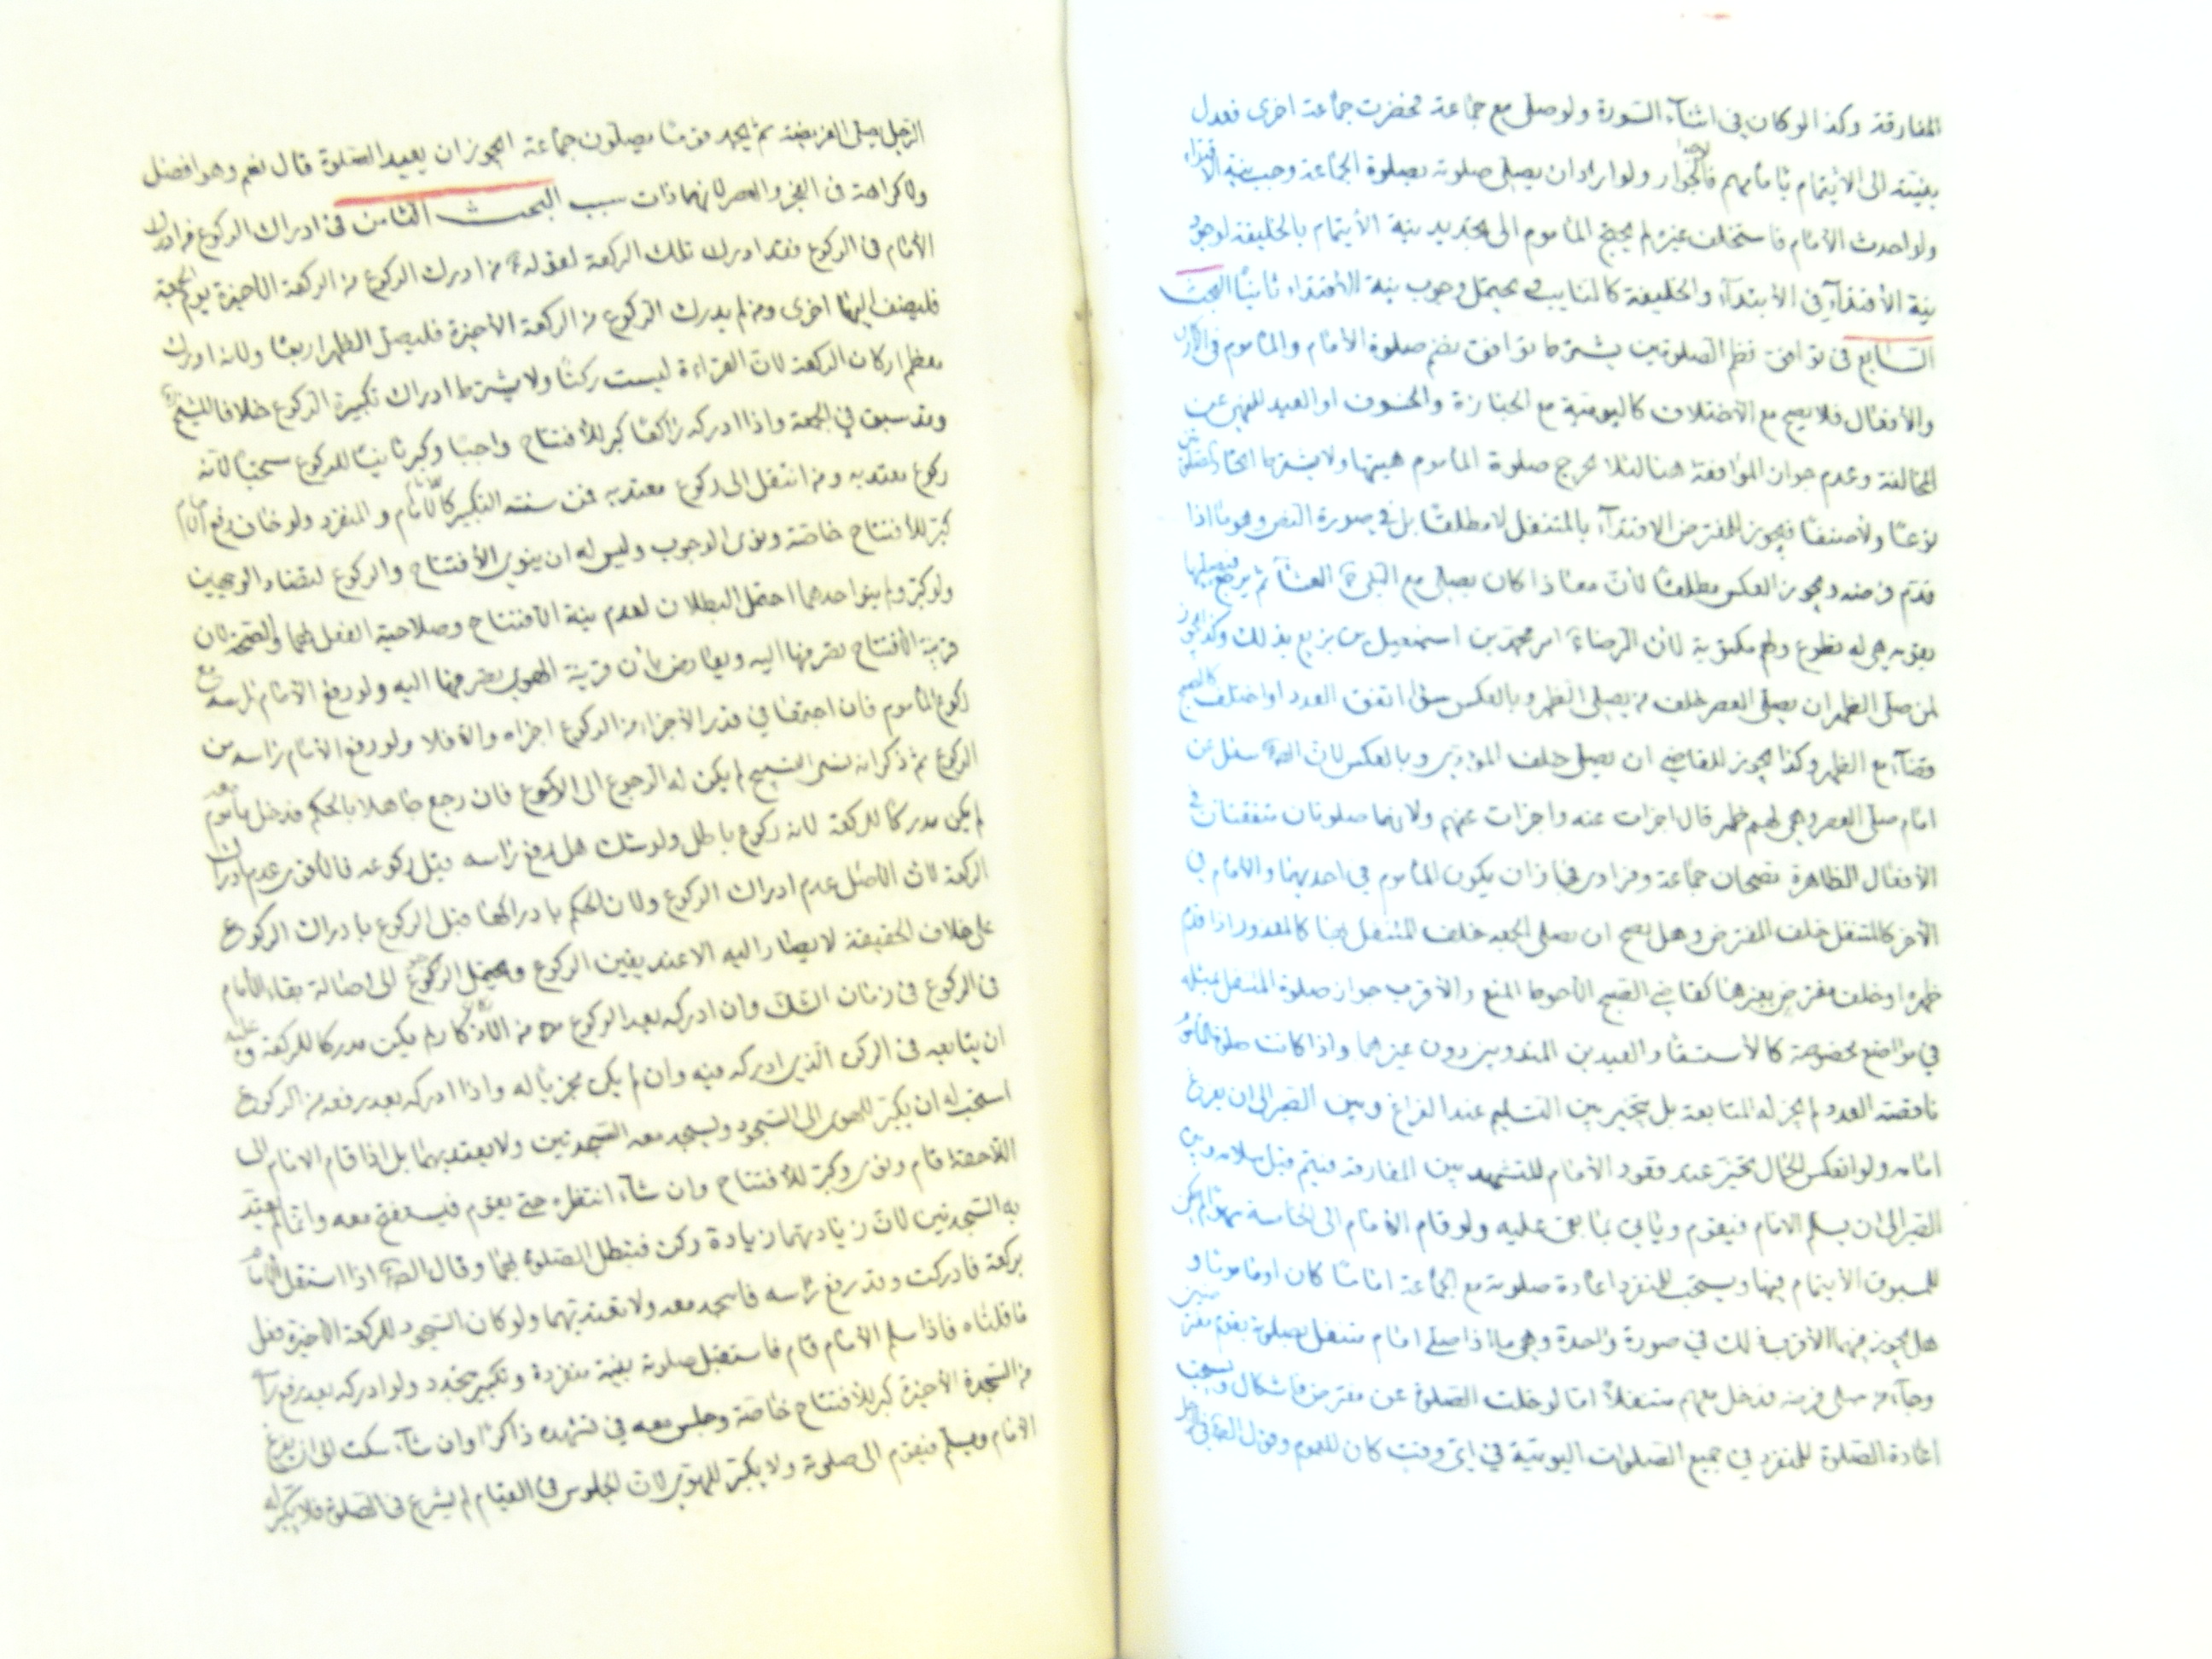 المفارقة وكذا لو كان في اثنآء السورة ولو صلى مع جماعة فحضرت جماعة اخرى فعدل
بنيته الى الايتمام بامامهم فالوجه الجواز ولو اراد ان يصلى صلوته بصلوة الجماعة وجب نية الاقتداء
ولو احدث الامام فاستخلف غيره لم يحتج الماموم الى تجديد نية الأيتمام بالخليفة لوجود
نية الأقتدآء في الأبتدآء والخليفة كالنايب ويحتمل وجوب نية الاقتداء ثانيًا البحث
السابع في توافق نظم الصلوتين يشترط توافق نظم صلوة الأمام والماموم في الاركان
والأفعال فلا يصح مع الاختلاف كاليومية مع الجنازة والخسوف او العيد للنهي عن
المخالفة وعدم جواز الموافقة هنا لئلا تخرج صلوة الماموم هيئتها ولا يشترط اتحاد الصلوتين
نوعًا ولا صنفًا فيجوز للمفترض الاقتدآء بالمتنفل لا مطلقًا بل في صورة النص وهو ما اذا
قدم فرضه ويجوز العكس مطلقًا لأن معاذا كان يصلى مع النبي العشآ ثم يرجع فيصليها
بقومه هي له تطوع ولهم مكتوبة لأن الرضاء امر محمد بن اسمعيل بن بزيع بذلك وكذا يجوز
لمن صلى الظهر ان يصلى العصر خلف من يصلى الظهر وبالعكس سواء اتفق العدد او اختلف كالصبح
قضآء مع الظهر وكذا يجوز للقاضي ان يصلى خلف المؤدى وبالعكس لان سئل عن
امام صلى العصر وهي لهم ظهر قال اجزات عنه واجزات عنهم ولانهما صلوتان متفقتان في
الأفعال الظاهرة تصحان جماعة وفرادى فجاز ان يكون الماموم في احديهما والامام في
الأخرى كالمتنفل خلف المفترض وهل يصح ان يصلى الجمعه خلف المتنفل بها كالمعذور اذا قدم
ظهره او خلف مفترض بغيرها كقاضي الصبح الأحوط المنع والأقرب جواز صلوة المتنفل بمثله
في مواضع مخصوصة كالأستسقا والعيدين المندوبين دون غيرهما واذا كانت صلوة الماموم
ناقصة العدد لم يجز له المتابعة بل يتخير بين التسليم عند الفراغ وبين الصبر الى ان يفرغ
امامه ولو انعكس الحال تخير عند قعود الأمام للتشهد بين المفارقة فيتم قبل سلامه وبين
الصبر الى ان يسلم الامام فيقوم وياتي بما بقى عليه ولو قام الامام الى الخامسة سهوا لم يكن
للمسبوق الأيتمام فيها ويستحب للمنفرد اعادة صلوته مع الجماعة امامًا كان او مامومًا و
هل يجوز فيهما الأقرب ذلك في صورة واحدة وهي ما اذا صلى امام متنفل بصلوته بقوم مفترضين
وجآء من صلى فرضه فدخل معهم متنفلاً اما لو خلت الصلوة عن مفترض فاشكال ويستحب
اعادة الصلوة للمنفرد في جميع الصلوات اليومية في اى وقت كان للعموم وقول في الرجل
الرجل يصلى الفريضة ثم يجد قومًا يصلون جماعة ايجوز ان يعيد الصلوة قال نعم وهو افضل
ولا كراهة في الفجر والعصر لانهما ذات سبب البحث الثامن في ادراك الركوع من ادرك
الأمام في الركوع فقد ادرك تلك الركعة لقوله من ادرك الركوع من الركعة الاخيرة يوم الجمعة
فليضف اليها اخرى ومن لم يدرك الركوع من الركعة الأخيرة فليصل الظهر اربعًا ولانه ادرك
معظم اركان الركعة لان القراءة ليست ركنًا ولا يشترط ادراك تكبيرة الركوع خلافا للشيخ
وقد سبق في الجمعة واذا ادركه راكعًا كبر للأفتتاح واجبًا وكبر ثانيًا للركوع مستحبًا لانه
ركوع معتد به ومن انتقل الى ركوع معتد به فمن سنته التكبير كالأمام والمنفرد ولو خاف رفع الامام
كبر للأفتتاح خاصة ونوى الوجوب وليس له ان ينوى الأفتتاح والركوع لتضاد الوجهين
ولو كبر ولم ينو احدهما احتمل البطلان لعدم نية الافتتاح وصلاحية الفعل لهما والصحة لان
قرينة الأفتتاح تصرفها اليه ويعارض بأن قرينة الهوى تصرفها اليه ولو رفع الأمام راسه مع
ركوع الماموم فان اجتمعا في قدر الأجزاء من الركوع اجزاه والا فلا ولو رفع الأمام راسه من
الركوع ثم ذكر انه نسى التسبيح لم يكن له الرجوع الى الركوع فان رجع جاهلا بالحكم فدخل ماموم معه
لم يكن مدركا للركعة لانه ركوع باطل ولو شك هل رفع راسه قبل ركوعه فالاقوى عدم ادراك
الركعة لان الاصل عدم ادراك الركوع ولان الحكم بادراكها قبل الركوع بادراك الركوع
على خلاف الحقيقة لا يصار اليه الا عند يقين الركوع ويحتمل الركوع الى اصالة بقاء الأمام
في الركوع في زمان الشك وان ادركه بعد الركوع من الاذكار لم يكن مدركا للركعة و عليه
ان يتابعه في الركن الذي ادركه فيه وان لم يكن مجزيا له واذا ادركه بعد رفعه من الركوع
استحب له ان يكبر للهوى الى السجود ويسجد معه السجدتين ولا يعتد بهما بل اذا قام الامام الى
اللاحقة قام ونوى وكبر للأفتتاح وان شآء انتظره حتى يقوم فيستفتح معه وانما لم يعتد
به السجدتين لان زيادتهما زيادة ركن فتبطل الصلوة بهما وقال اذا استقل الأمام
بركعة فادركت وقد رفع راسه فاسجد معه ولا تعتد بهما ولو كان السجود للركعة الاخيرة فعل
ما قلناه فاذا سلم الأمام قام فاستقبل صلوته بنية منفردة وتكبير متجدد ولو ادركه بعد رفع راسه
من السجدة الأخيرة كبر للأفتتاح خاصة وجلس معه في تشهده ذاكرًا وان شآء سكت الى ان يفرغ
الامام ويسلم فيقوم الى صلوته ولا يكبر للهوى لان الجلوس في القيام لم يشرع في الصلوة فلا تكبير له